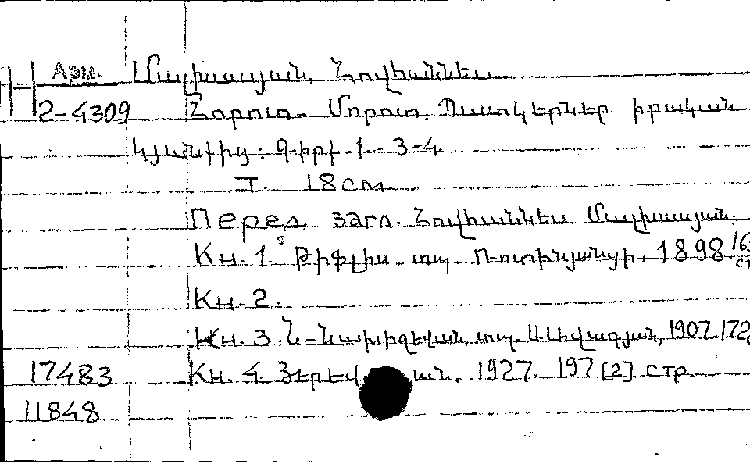 Арм. Մալխասյան, Հովհաննես
2-4309 Զորուտ-Մորուտ, Պատկերներ իրական
կյանքից: Գիրք 1-3-4
Т. 18 см.
Перед загл. Հովհաննես Մալխասյան.
Кн. 1. Թիֆլիս. տպ. Ռոտինյանցի. 1898
Кн. 2.
Кн. 3 Ն-Նախիջեվան, տպ. 1907. 172
17483 Кн. 4. Յերեվան. 1927. 197 [2] стр.
11848